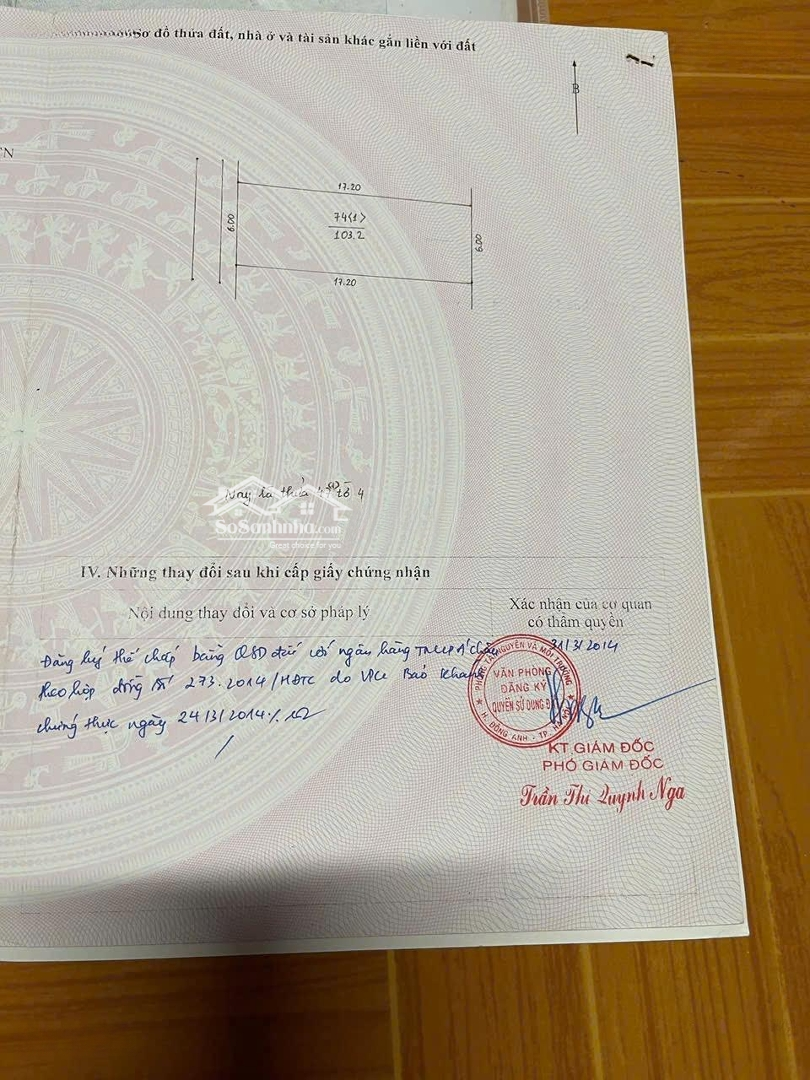 Sơ đồ thửa đất, nhà ở và tài sản khác gắn liền với đất
B
17.20
6.00
74(1)
103.2
6.00
17.20
Nay là thửa tờ 4
SoSanhnha.com
Great choice for you
IV. Những thay đổi sau khi cấp giấy chứng nhận
Nội dung thay đổi và cơ sở pháp lý
Xác nhận của cơ quan
có thẩm quyền
Đăng ký thế chấp bằng QSD đất với ngân hàng TMCP Á châu
theo hợp đồng số 273.2014/HĐTC do VPCC Bảo Khanh
chứng thực ngày 24/3/2014
31/3/2014
PHÒNG TÀI NGUYÊN VÀ MÔI TRƯỜNG
VĂN PHÒNG
ĐĂNG KÝ
QUYỀN SỬ DỤNG Đ
H. ĐÔNG ANH - TP. HÀ NỘI
KT.GIÁM ĐỐC
PHÓ GIÁM ĐỐC
Trần Thị Quỳnh Nga